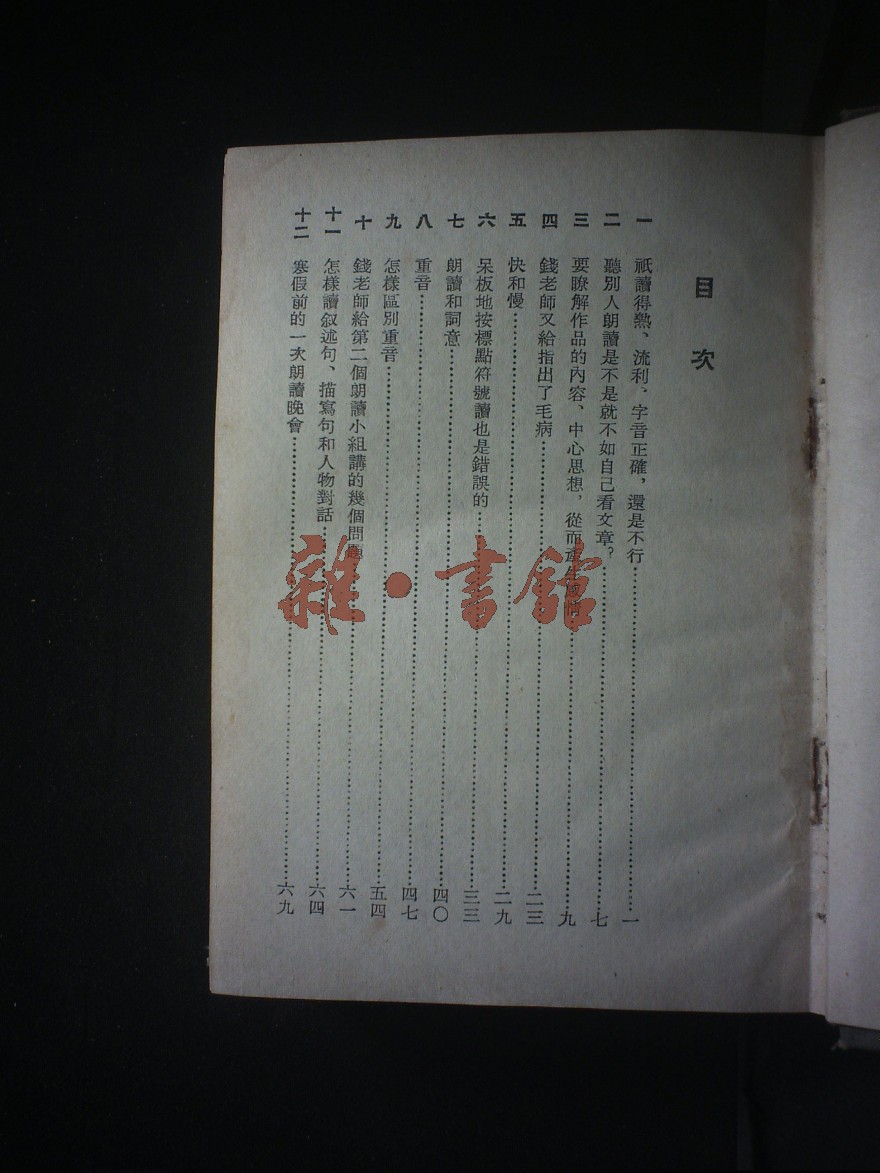 目次
一 祇讀得熟、流利，字音正確，還是不行……一
二 聽別人朗讀是不是就不如自己看文章？……七
三 要瞭解作品的內容、中心思想，從而產生感情……九
四 錢老師又給指出了毛病……二三
五 快和慢……二九
六 呆板地按標點符號讀也是錯誤的……三三
七 朗讀和詞意……四〇
八 重音……四七
九 怎樣區別重音……五四
十 錢老師給第二個朗讀小組講的幾個問題……六一
十一 怎樣讀叙述句、描寫句和人物對話……六四
十二 寒假前的一次朗讀晚會……六九
雜·書館